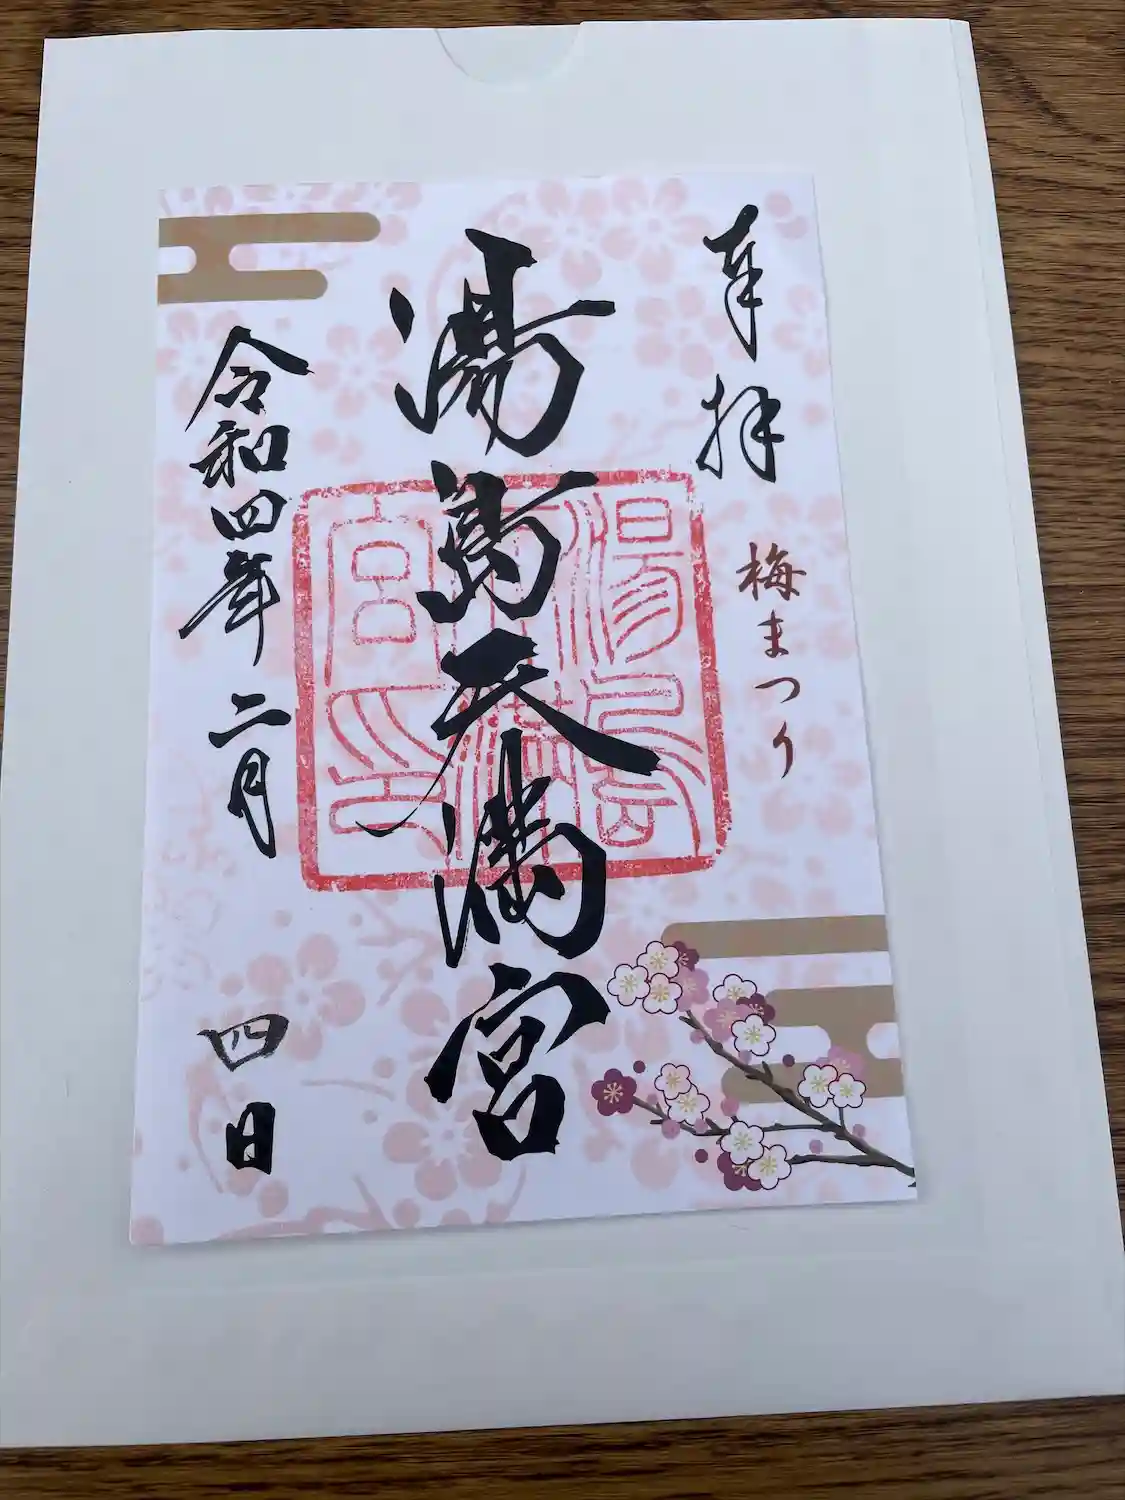 奉拝
梅まつり
湯島天満宮
湯島天満宮印
令和四年二月四日